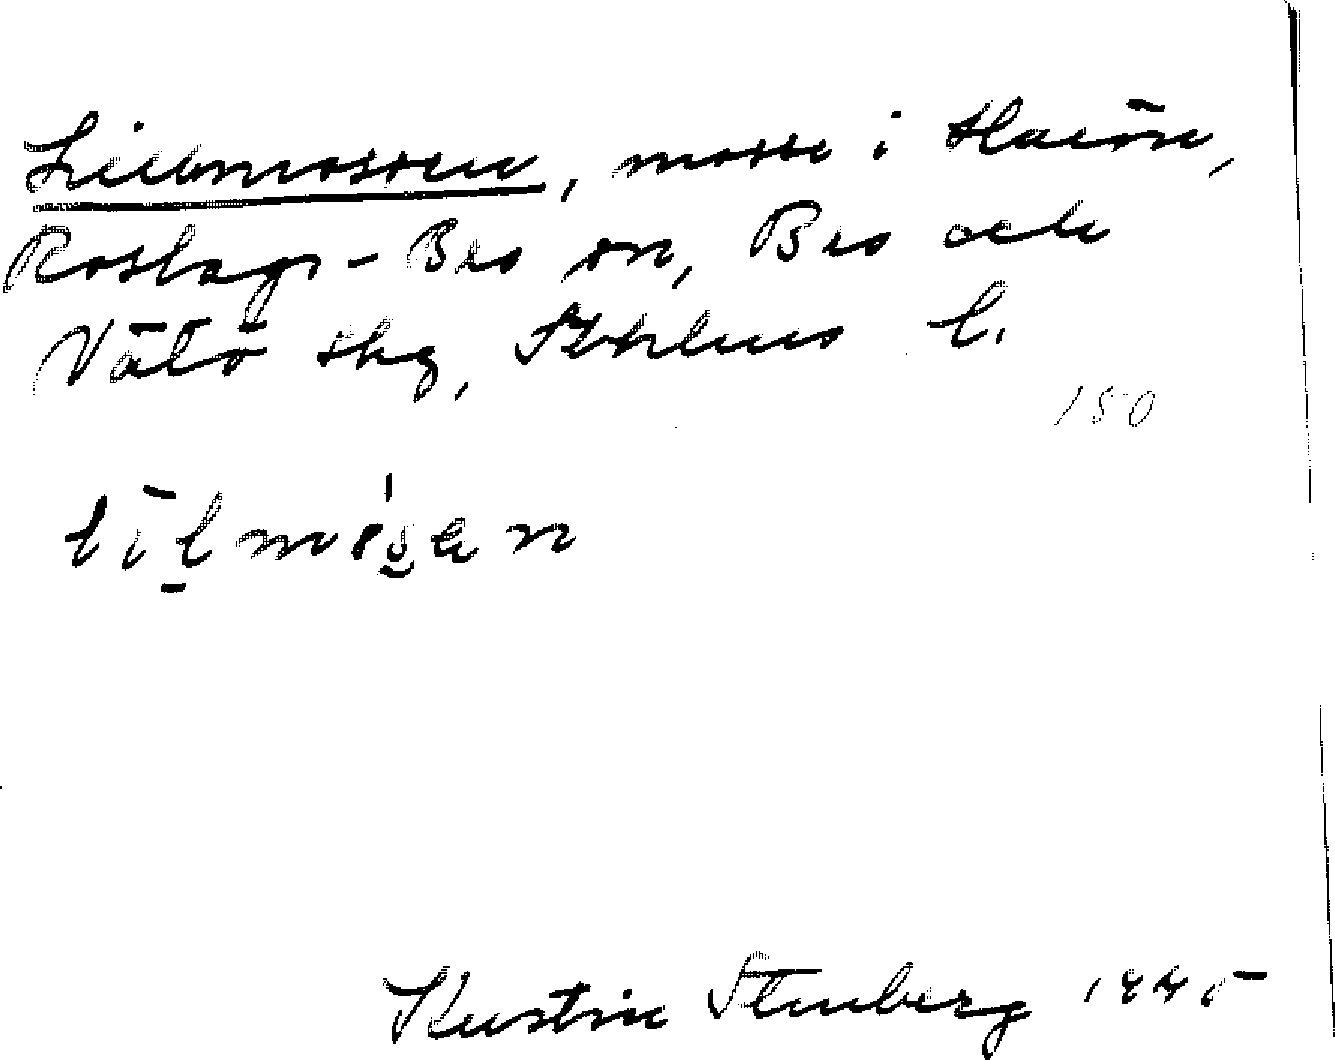 Lillmossen, mosse i Harön,
Roslags-Bro sn, Bro och
Vätö skg, Sthlms l.
150
lilmósen
Kerstin Stenberg 1945